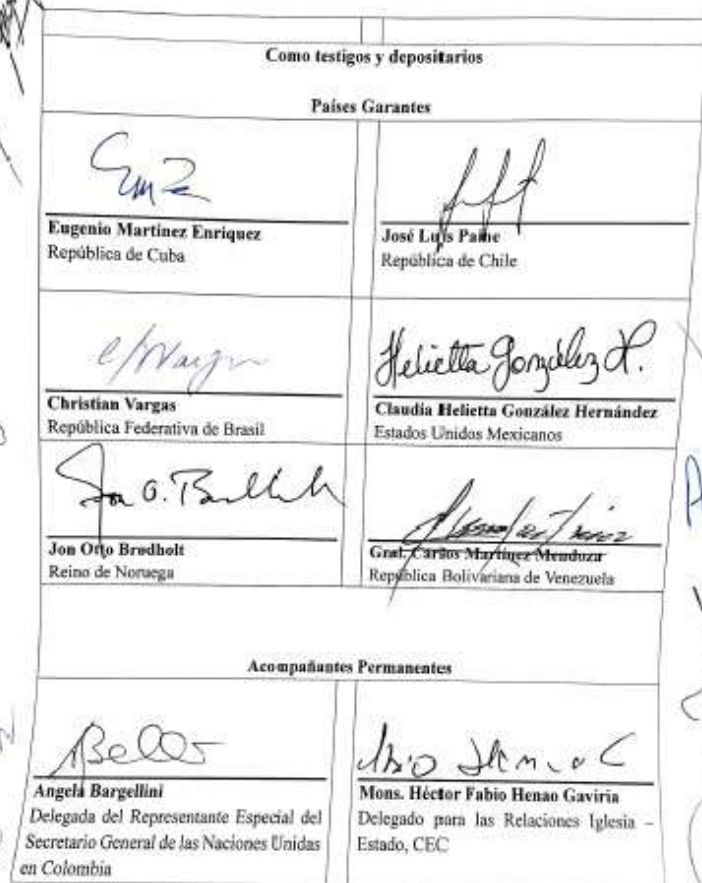 Como testigos y depositarios
Países Garantes
Eugenio Martínez Enriquez
República de Cuba
José Luis
República de Chile
Christian Vargas
República Federativa de Brasil
Helietta González H.
Claudia Helietta González Hernández
Estados Unidos Mexicanos
Jon O.
Jon Otto Brødholt
Reino de Noruega
Gral. Carlos Martínez Mendoza
República Bolivariana de Venezuela
Acompañantes Permanentes
Angela Bargellini
Delegada del Representante Especial del
Secretario General de las Naciones Unidas
en Colombia
Mons. Héctor Fabio Henao Gaviria
Delegado para las Relaciones Iglesia –
Estado, CEC